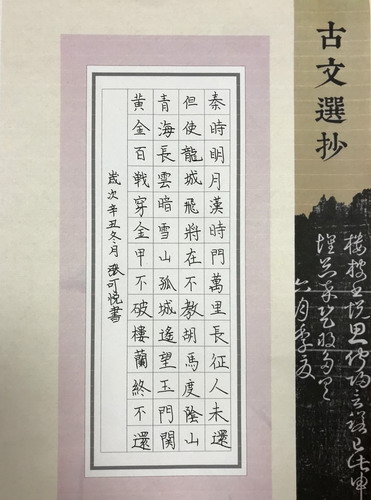 古文選抄
秦時明月漢時門萬里長征人未還
但使龍城飛將在不教胡馬度陰山
青海長雲暗雪山孤城遙望玉門關
黃金百戰穿金甲不破樓蘭終不還
歲次辛丑冬月 張可悅書